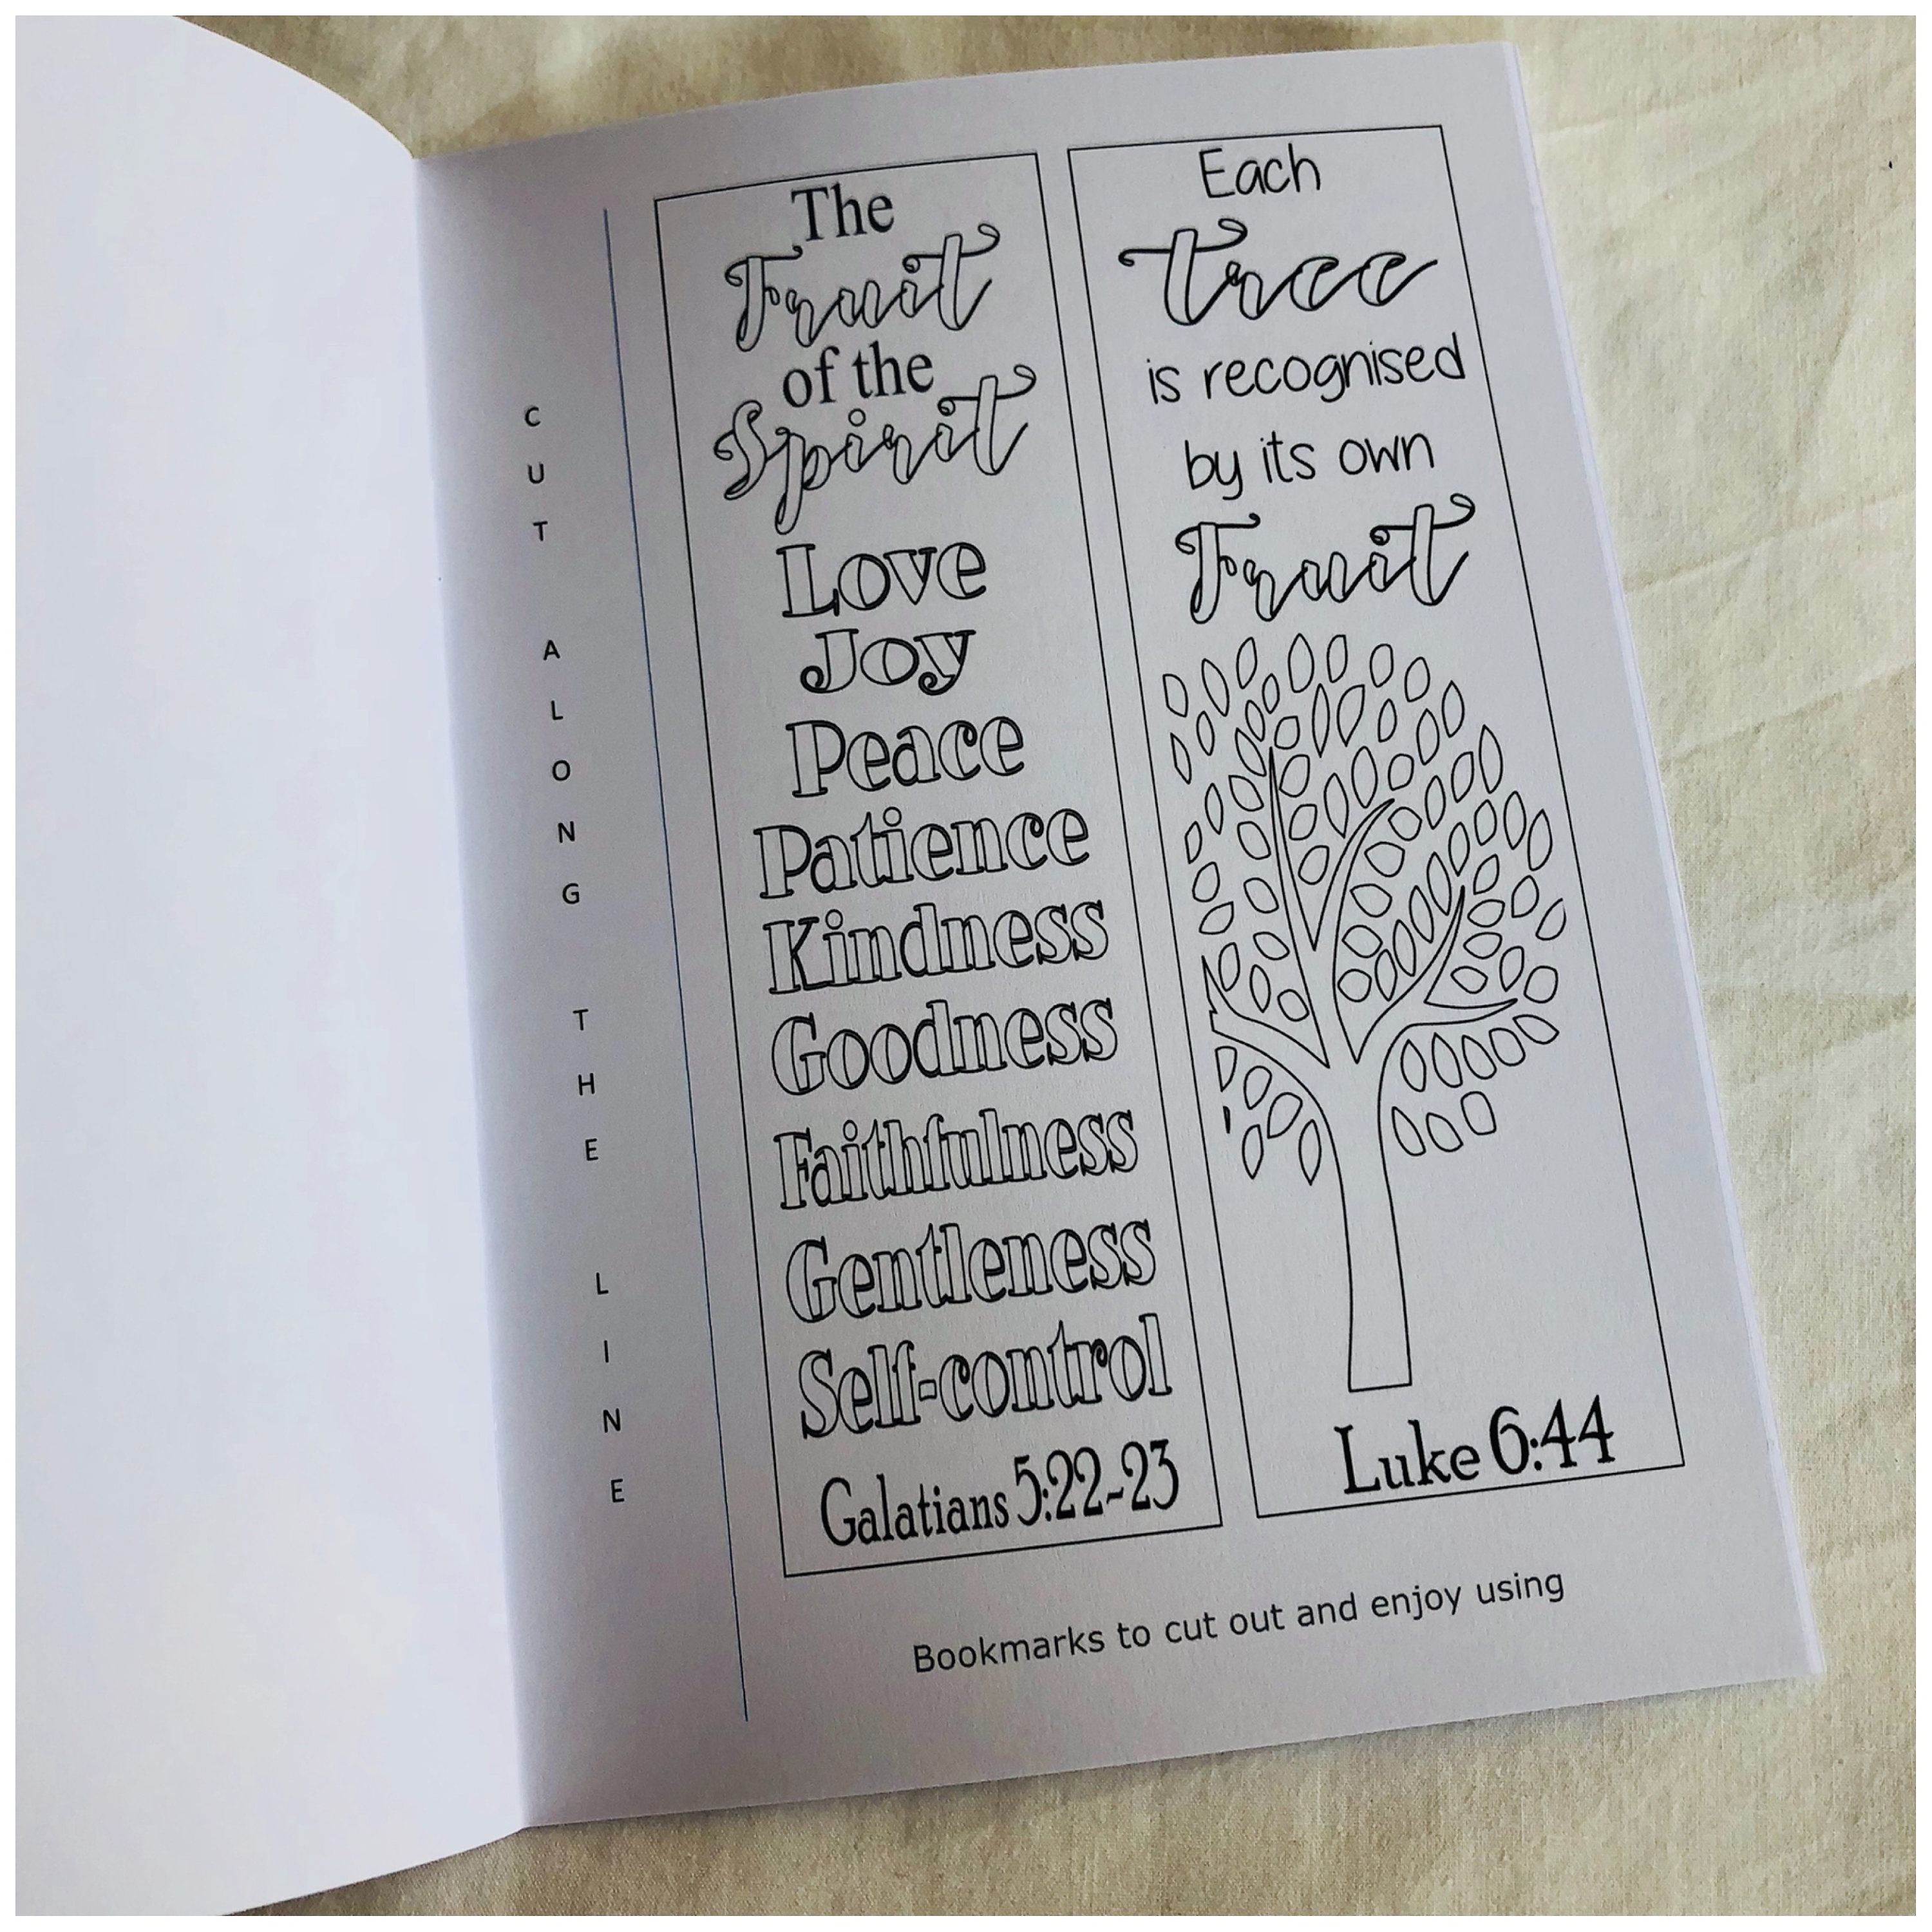 CUT ALONG THE LINE
The
Fruit
of the
Spirit
Love
Joy
Peace
Patience
Kindness
Goodness
Faithfulness
Gentleness
Self-control
Galatians 5:22-23
Each
tree
is recognised
by its own
Fruit
Luke 6:44
Bookmarks to cut out and enjoy using